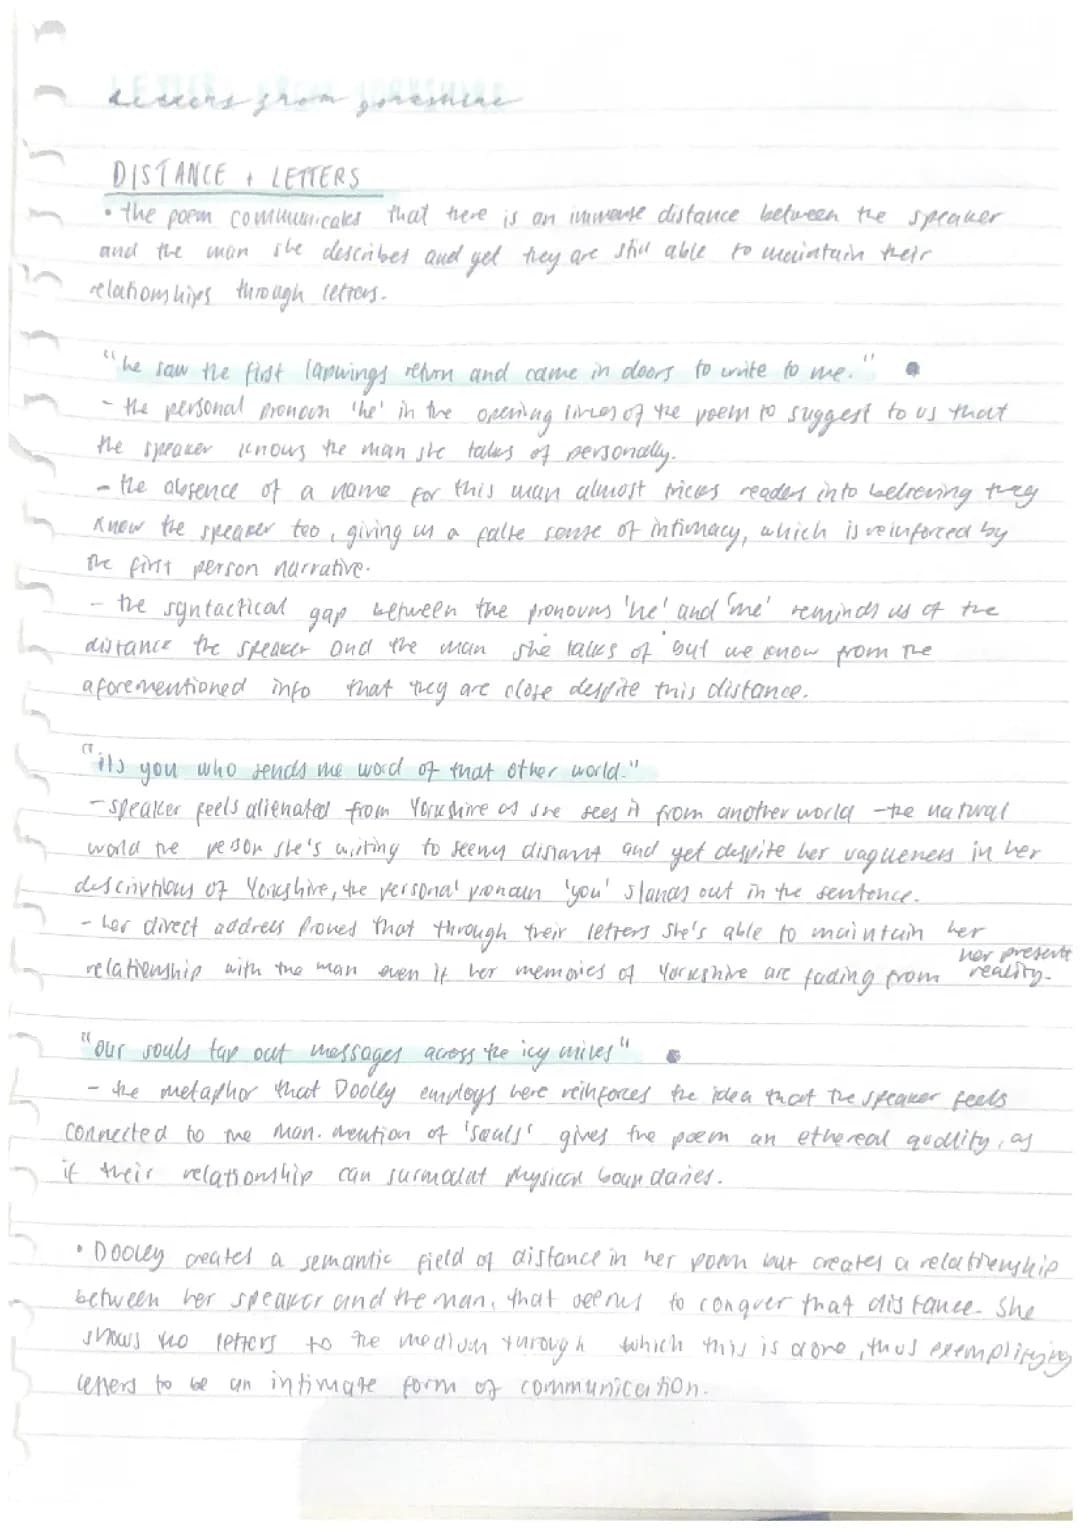 LETTERS FROM YORKSHIRE
letters from yorkshire
DISTANCE + LETTERS
• the poem communicates that there is an immense distance between the speaker
and the man she describes and yet they are still able to maintain their
relationships through letters.
"he saw the first lapwings return and came in doors to write to me."
- the personal pronoun 'he' in the opening lines of the poem to suggest to us that
the speaker knows the man she talks of personally.
- the absence of a name for this man almost tricks readers into believing they
know the speaker too, giving us a false sense of intimacy, which is reinforced by
the first person narrative.
- the syntactical gap between the pronouns 'he' and 'me' reminds us of the
distance the speaker and the man she talks of but we know from the
aforementioned info that they are close despite this distance.
"its you who sends me word of that other world."
- speaker feels alienated from Yorkshire as she sees it from another world - the natural
world the person she's writing to seems distant and yet despite her vagueness in her
descriptions of Yorkshire, the personal pronoun 'you' stands out in the sentence.
- her direct address proves that through their letters she's able to maintain her
relationship with the man even if her memories of Yorkshire are fading from her present
reality.
"our souls tap out messages across the icy miles"
- the metaphor that Dooley employs here reinforces the idea that the speaker feels
connected to the man. mention of 'souls' gives the poem an ethereal quality, as
if their relationship can surmount physical boundaries.
• Dooley creates a semantic field of distance in her poem but creates a relationship
between her speaker and the man, that seems to conquer that distance. She
shows letters to the medium through which this is done, thus exemplifying
letters to be an intimate form of communication.